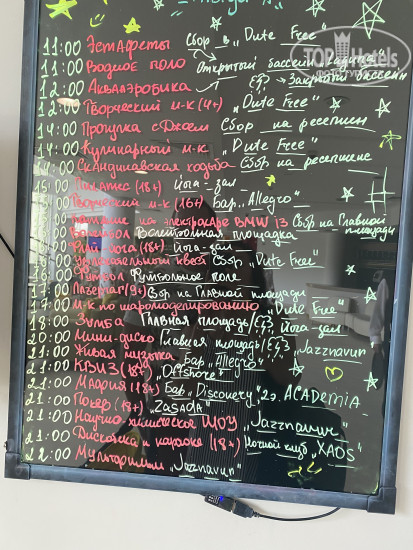 11:00 Эстафеты Сбор в „Dute Free"
11:00 Водное поло Открытый бассейн
12:00 Акваэробика Закрытый бассейн
12:00 Творческий м-к (4+) „Dute Free"
14:00 Прогулка с Джеем Сбор на ресепшн
14:00 Кулинарный м-к „Dute Free"
14:00 Скандинавская ходьба Сбор на ресепшене
15:00 Пилатес (18+) Йога-зал
Творческий м-к (16+) Бар „Allegro"
на электрокаре BMW i3 Сбор на Главной площади
Волейбол Волейбольная площадка
йога (18+) Йога-зал
квест Сбор „Dute Free"
16:00 Футбол Футбольное поле
17:00 Лазертаг (9+) Сбор на Главной площади
17:00 м-к по шаромоделированию „Dute Free"
18:00 Зумба Главная площадь/ Йога-зал
20:00 Мини-диско Главная площадь/ „Jazznavun"
21:00 Живая музыка Бар „Allegro"
21:00 КВИЗ (18+) „Offshore"
21:00 Мафия (18+) Бар „Discovery" 2э. ACADEMiA
21:00 Покер (18+) „Zasada"
21:00 Научно химическое ШОУ „Jazznavun"
Дискотека и караоке (18+) Ночной клуб „XAOS"
22:00 Мультфильм „Jazznavun"
TOP Hotels